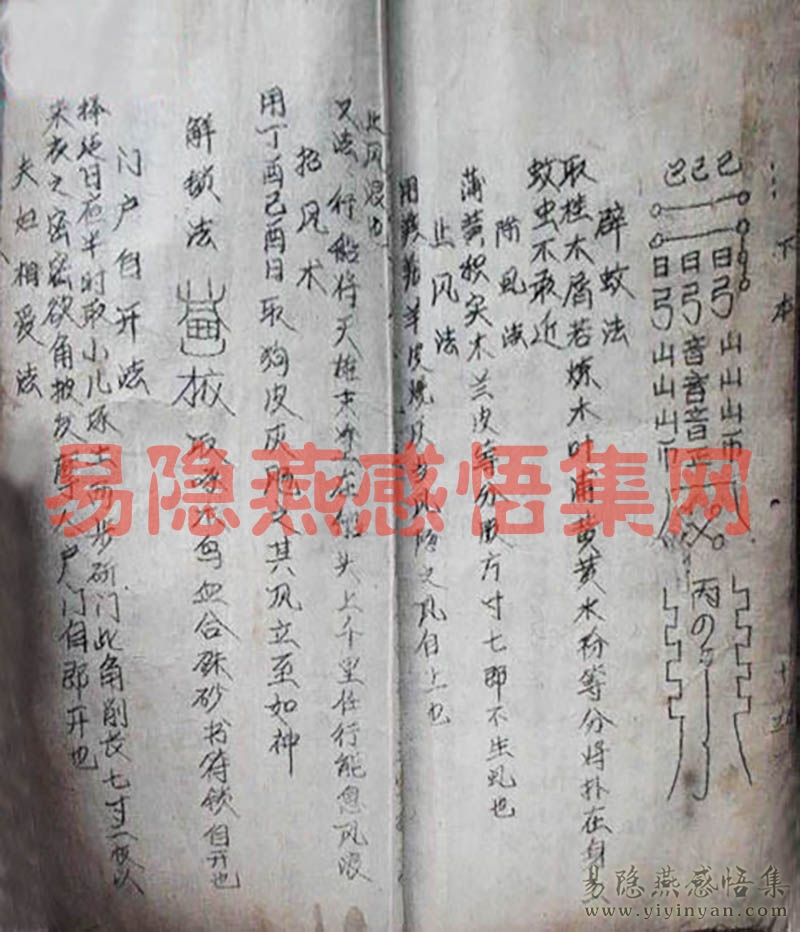 下本
巳己巳
日日日
弓弓弓
山音山
山音山
山音山
丙
辟蚊法
取桂木屑若炼木叶浦黄黄水粉等分将扑在身
蚊虫不敢近
除虱法
蒲黄枳实木兰皮等分服方寸七即不生虱也
止风法
用羊皮烧灰风自上也
止风浪也
又法 行船将天雄末涂在船头上千里任行能息风浪
招风术
用丁酉己酉日取狗皮灰之其风立至如神
解锁法
取血合硃砂书符锁自开也
门户自开法
日夜半时取小儿土门此角削长七寸二枚以
来衣之密密欲角户门自即开也
夫妇相爱法
易隐燕感悟集网
易隐燕感悟集
www.yiyinyan.com